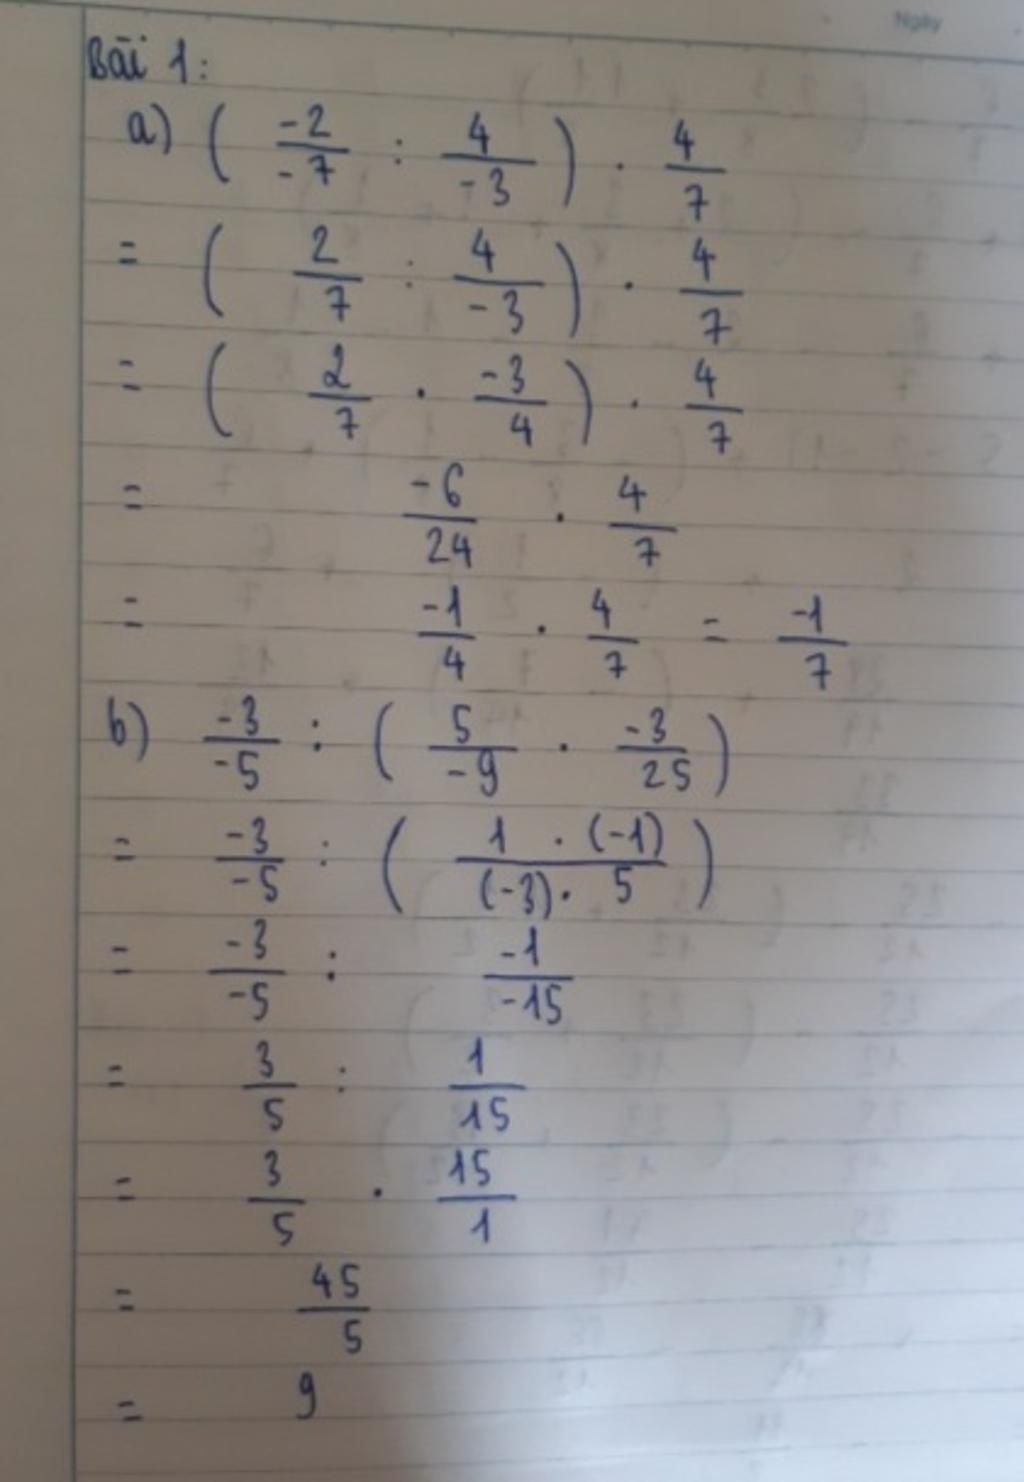 Ngày
Bài 1:
a) ( -2/-7 : 4/-3 ) . 4/7
= ( 2/7 : 4/-3 ) . 4/7
= ( 2/7 . -3/4 ) . 4/7
= -6/24 . 4/7
= -1/4 . 4/7 = -1/7
b) -3/-5 : ( 5/-9 . -3/25 )
= -3/-5 : ( 1 . (-1)/(-3) . 5 )
= -3/-5 : -1/-15
= 3/5 : 1/15
= 3/5 . 15/1
= 45/5
= 9